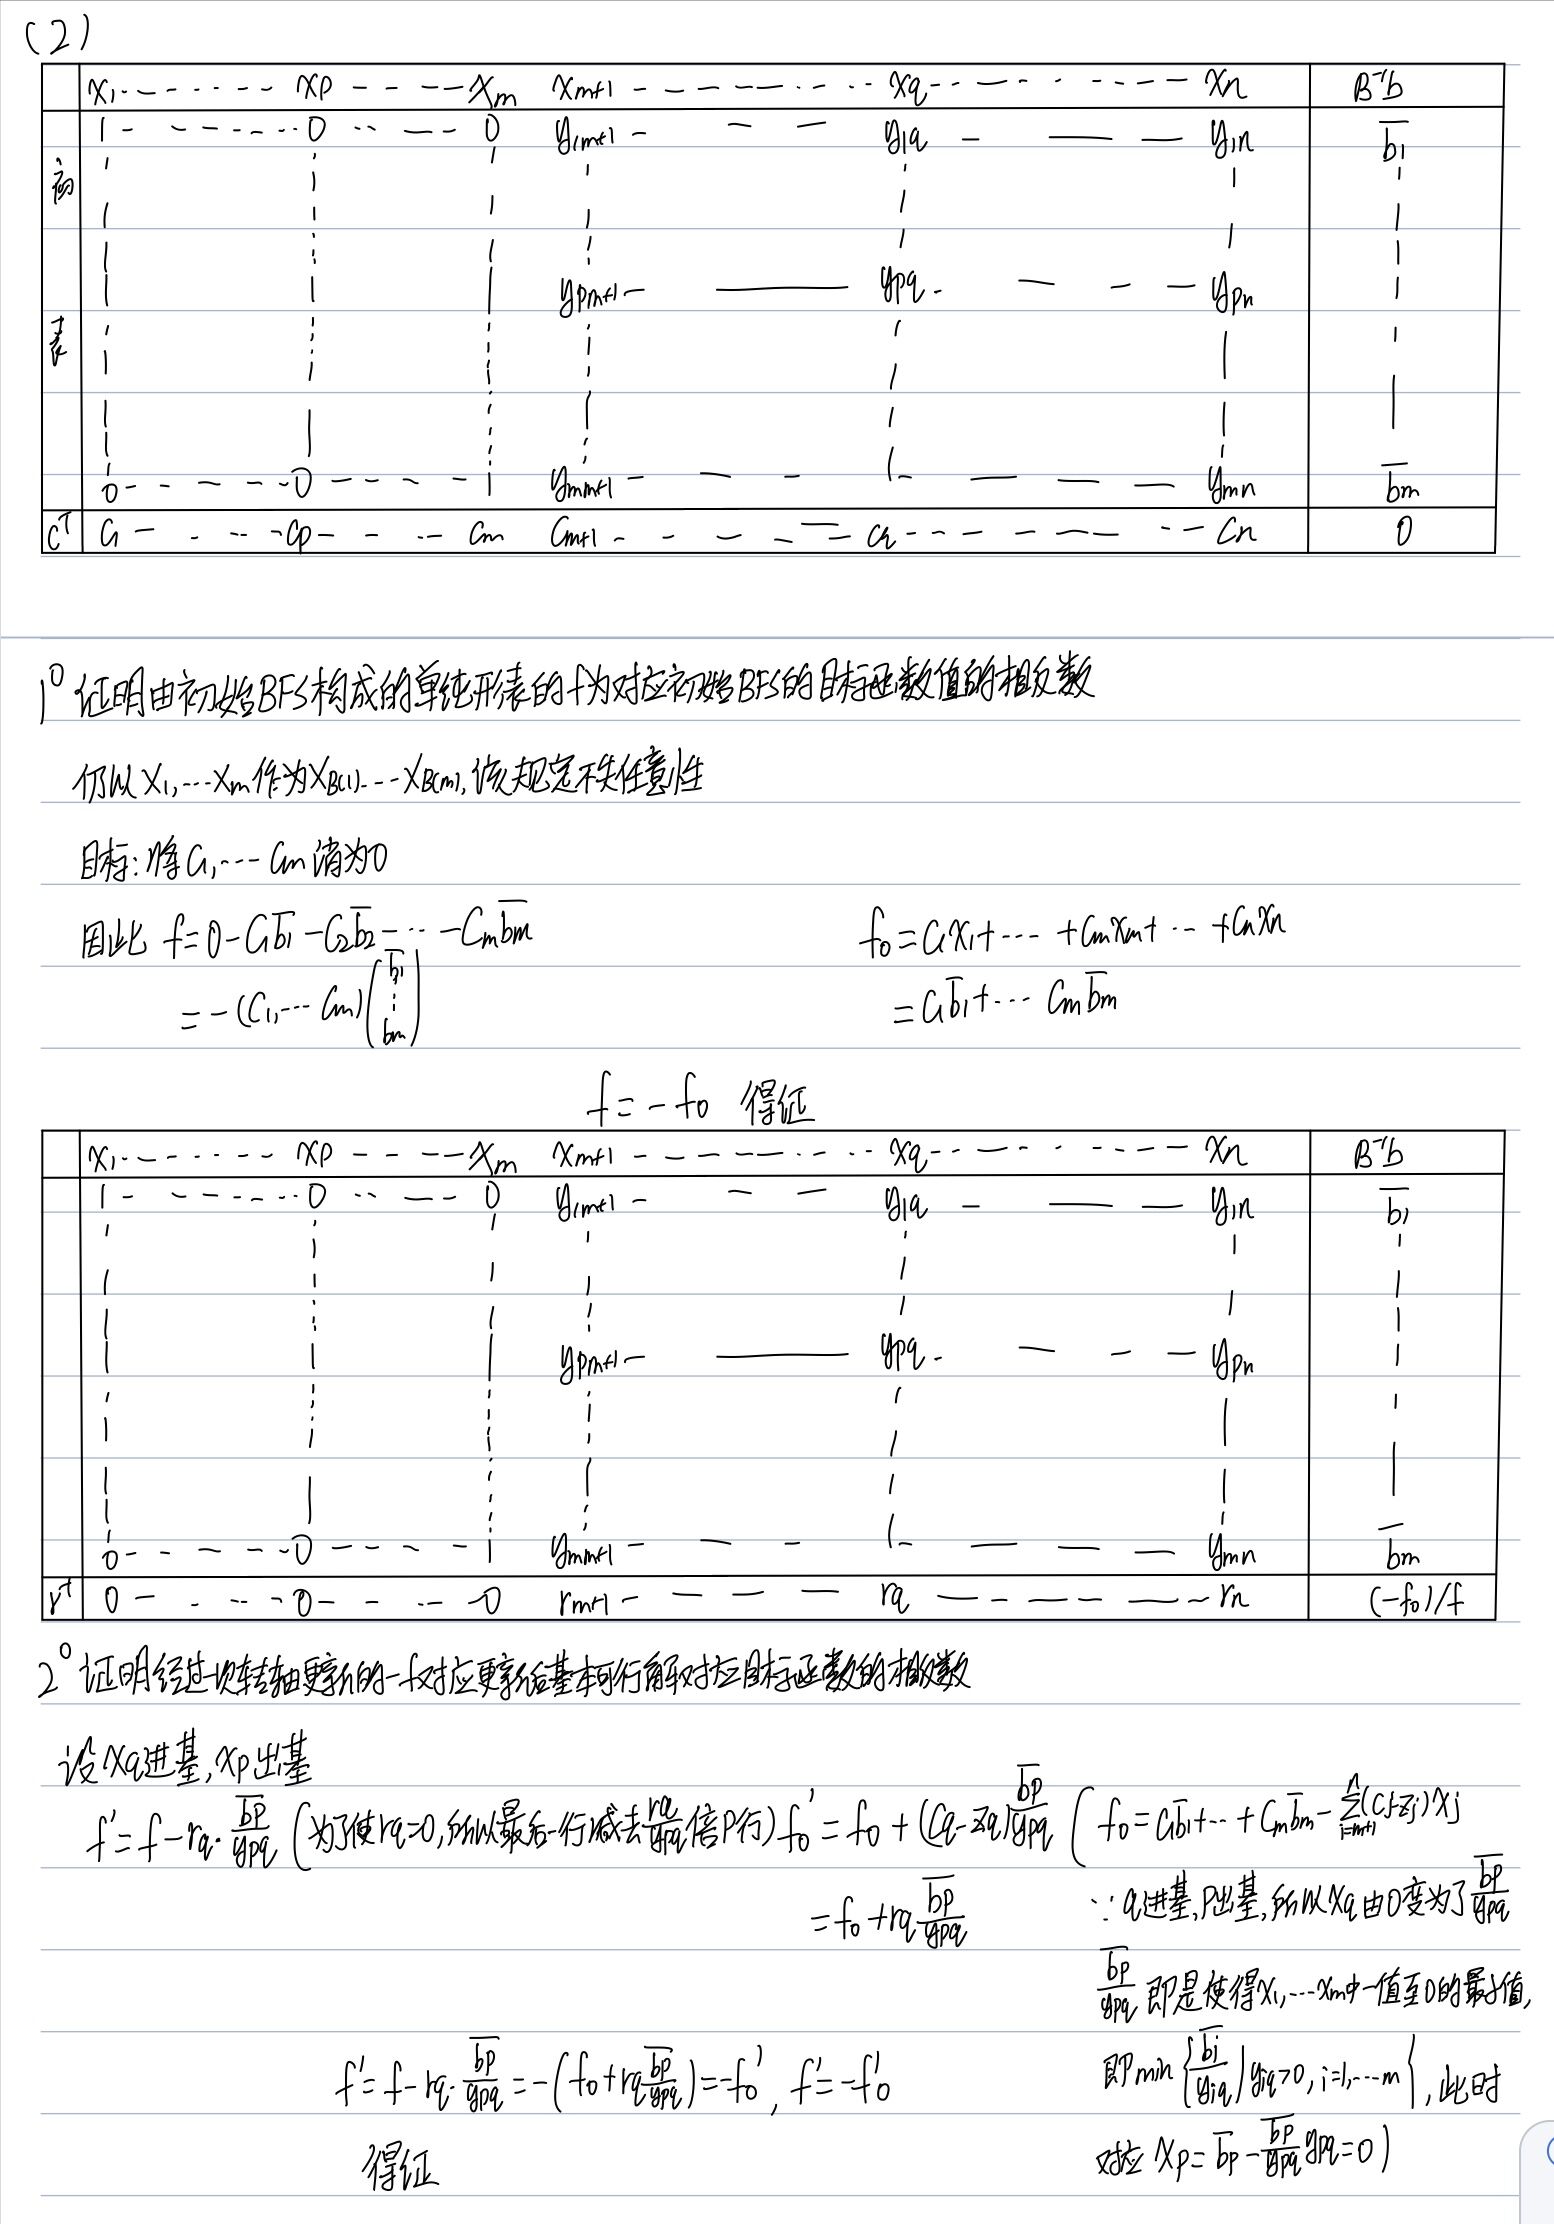 (2)
x₁ xp xm xm+1 xq xn B⁻¹b
1 0 0 y1m+1 y1q y1n b̄₁
初
ypm+1 ypq ypn
表
0 0 1 ymm+1 ymn b̄m
cᵀ c₁ cp cm cm+1 cq cn 0
1° 证明由初始BFS构成的单纯形表的f为对应初始BFS的目标函数值的相反数
仍以x₁,…xm作为xB(1)…xB(m),该规定不失任意性
目标:将c₁,…cm消为0
因此 f=0-c₁b̄₁-c₂b̄₂-…-cmb̄m f₀=c₁x₁+…+cmxm+…+cnxn
=-(c₁,…cm)(b̄₁ ⋮ bm) =c₁b̄₁+…cmb̄m
f=-f₀ 得证
x₁ xp xm xm+1 xq xn B⁻¹b
1 0 0 y1m+1 y1q y1n b̄₁
ypm+1 ypq ypn
0 0 1 ymm+1 ymn b̄m
rᵀ 0 0 0 rm+1 rq rn (-f₀)/f
2° 证明经过一次转轴更新的-f对应更新后基本可行解对应目标函数的相反数
设xq进基,xp出基
f'=f-rq·b̄p/ypq (为了使rq=0,所以最后一行减去rq/ypq倍p行) f₀'=f₀+(cq-zq)b̄p/ypq (f₀=c₁b̄₁+…+cmb̄m-∑ⁿi=m+1(cj-zj)xj
=f₀+rq b̄p/ypq ∵q进基,p出基,所以xq由0变为了b̄p/ypq
b̄p/ypq 即是使得x₁,…xm中一值至0的最小值,
f'=f-rq·b̄p/ypq=-(f₀+rq b̄p/ypq)=-f₀', f'=-f₀' 即min{b̄i/yiq|yiq>0,i=1,…m},此时
得证 对应 xp=b̄p-b̄p/ypq ypq=0)